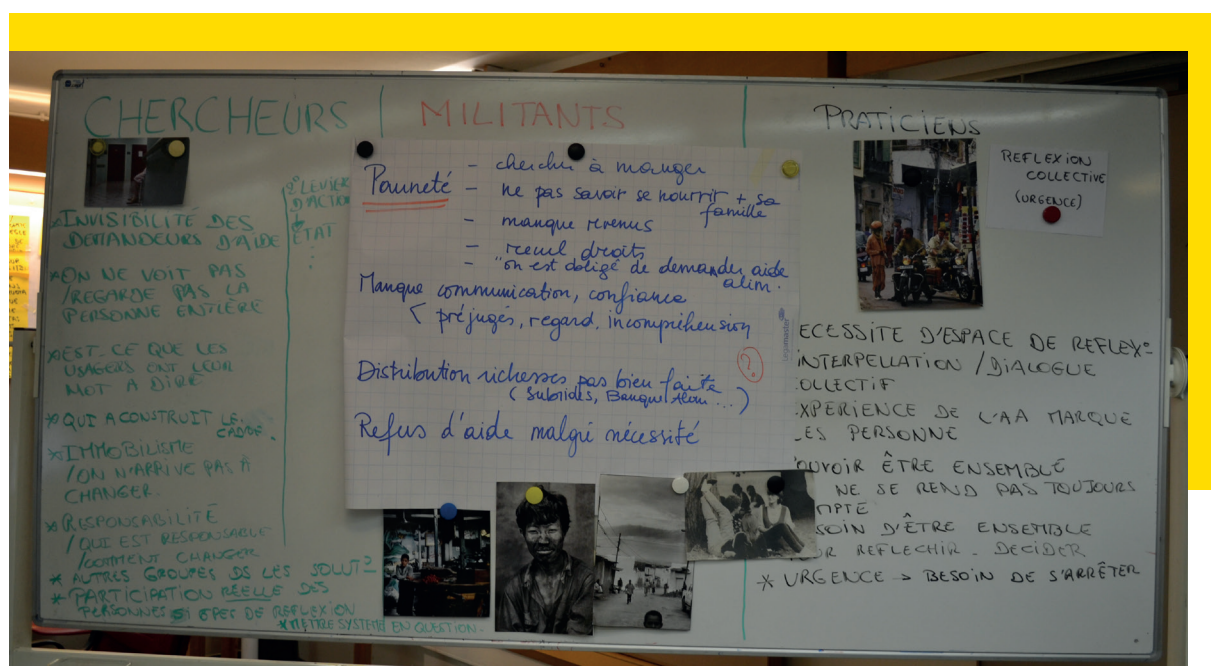 CHERCHEURS
INVISIBILITÉ DES
DEMANDEURS D'AIDE
* ON NE VOIT PAS
/REGARDE PAS LA
PERSONNE ENTIÈRE
* EST-CE QUE LES
USAGERS ONT LEUR
MOT A DIRE
* QUI A CONSTRUIT LE
CADRE.
* IMMOBILISME
/ON N'ARRIVE PAS À
CHANGER.
* RESPONSABILITÉ
/QUI EST RESPONSABLE
/COMMENT CHANGER
* AUTRES GROUPES DS LES SOLUT°
* PARTICIPATION RÉELLE DES
PERSONNES DE REFLEXION
* METTRE SYSTÈME EN QUESTION.
2° LEVIER
D'ACTION
ETAT
:
MILITANTS
Pauvreté
- chercher à manger
- ne pas savoir se nourrir + sa
famille
- manque revenus
- recul droits
- "on est obligé de demander aide
alim.
Manque communication, confiance
< préjugés, regard, incompréhension
?
Distribution richesses pas bien faite
(Subsides, Banque Alim...)
Refus d'aide malgré nécessité
legamaster
PRATICIENS
REFLEXION
COLLECTIVE
(URGENCE)
ECESSITE D'ESPACE DE REFLEX°
INTERPELLATION / DIALOGUE
OLLECTIF
XPERIENCE DE L'AA MARQUE
LES PERSONNE
OUVOIR ÊTRE ENSEMBLE
NE SE REND PAS TOUJOURS
MPTE
SOIN D'ÊTRE ENSEMBLE
R REFLECHIR. DECIDER
* URGENCE → BESOIN DE S'ARRÊTER